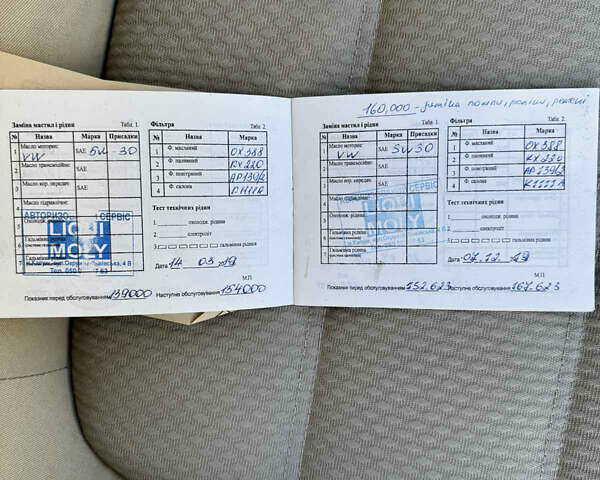 160,000 - заміна помпи, роліки, ремені
Заміна мастил і рідин Табл. 1.
№ Назва Марка Присадки
1 Масло моторне: VW SAE 5W-30
2 Масло трансмісійне: SAE
3 Масло кер. передач: SAE
4 Масло гідравлічне:
5 Охолодж. рідина
6 Гальмівна рідина
АВТОРИЗО СЕРВІС
LIQUI
MOLY
Фільтри Табл. 2.
№ Назва Марка
1 Ф. масляний OX 388
2 Ф. паливний KX 220
3 Ф. повітряний AP139/2
4 Ф. салона K1111A
Тест технічних рідин
1. охолодж. рідини
2. електроліт
3 гальмівна рідина
Дата 14 03 2019
М.П.
Показник перед обслуговуванням 139000 Наступне обслуговування 154000
Заміна мастил і рідин Табл. 1.
№ Назва Марка Присадки
1 Масло моторне: VW SAE 5W30
2 Масло трансмісійне: SAE
3 Масло кер. передач: SAE
4 Масло гідравлічне:
5 Охолодж. рідина
6 Гальмівна рідина
LIQUI
MOLY
Фільтри Табл. 2.
№ Назва Марка
1 Ф. масляний OX 388
2 Ф. паливний KX 220
3 Ф. повітряний AP139/2
4 Ф. салона K1111A
Тест технічних рідин
1. охолодж. рідини
2. електроліт
3 гальмівна рідина
Дата 07.12.2019
М.П.
Показник перед обслуговуванням 152.623 Наступне обслуговування 167.623